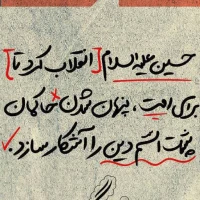 حسین علیه‌السلام [انقلاب کرد تا]
برای امت، پنهان شدن حاکمان
پشت اسم دین را آشکار سازد.